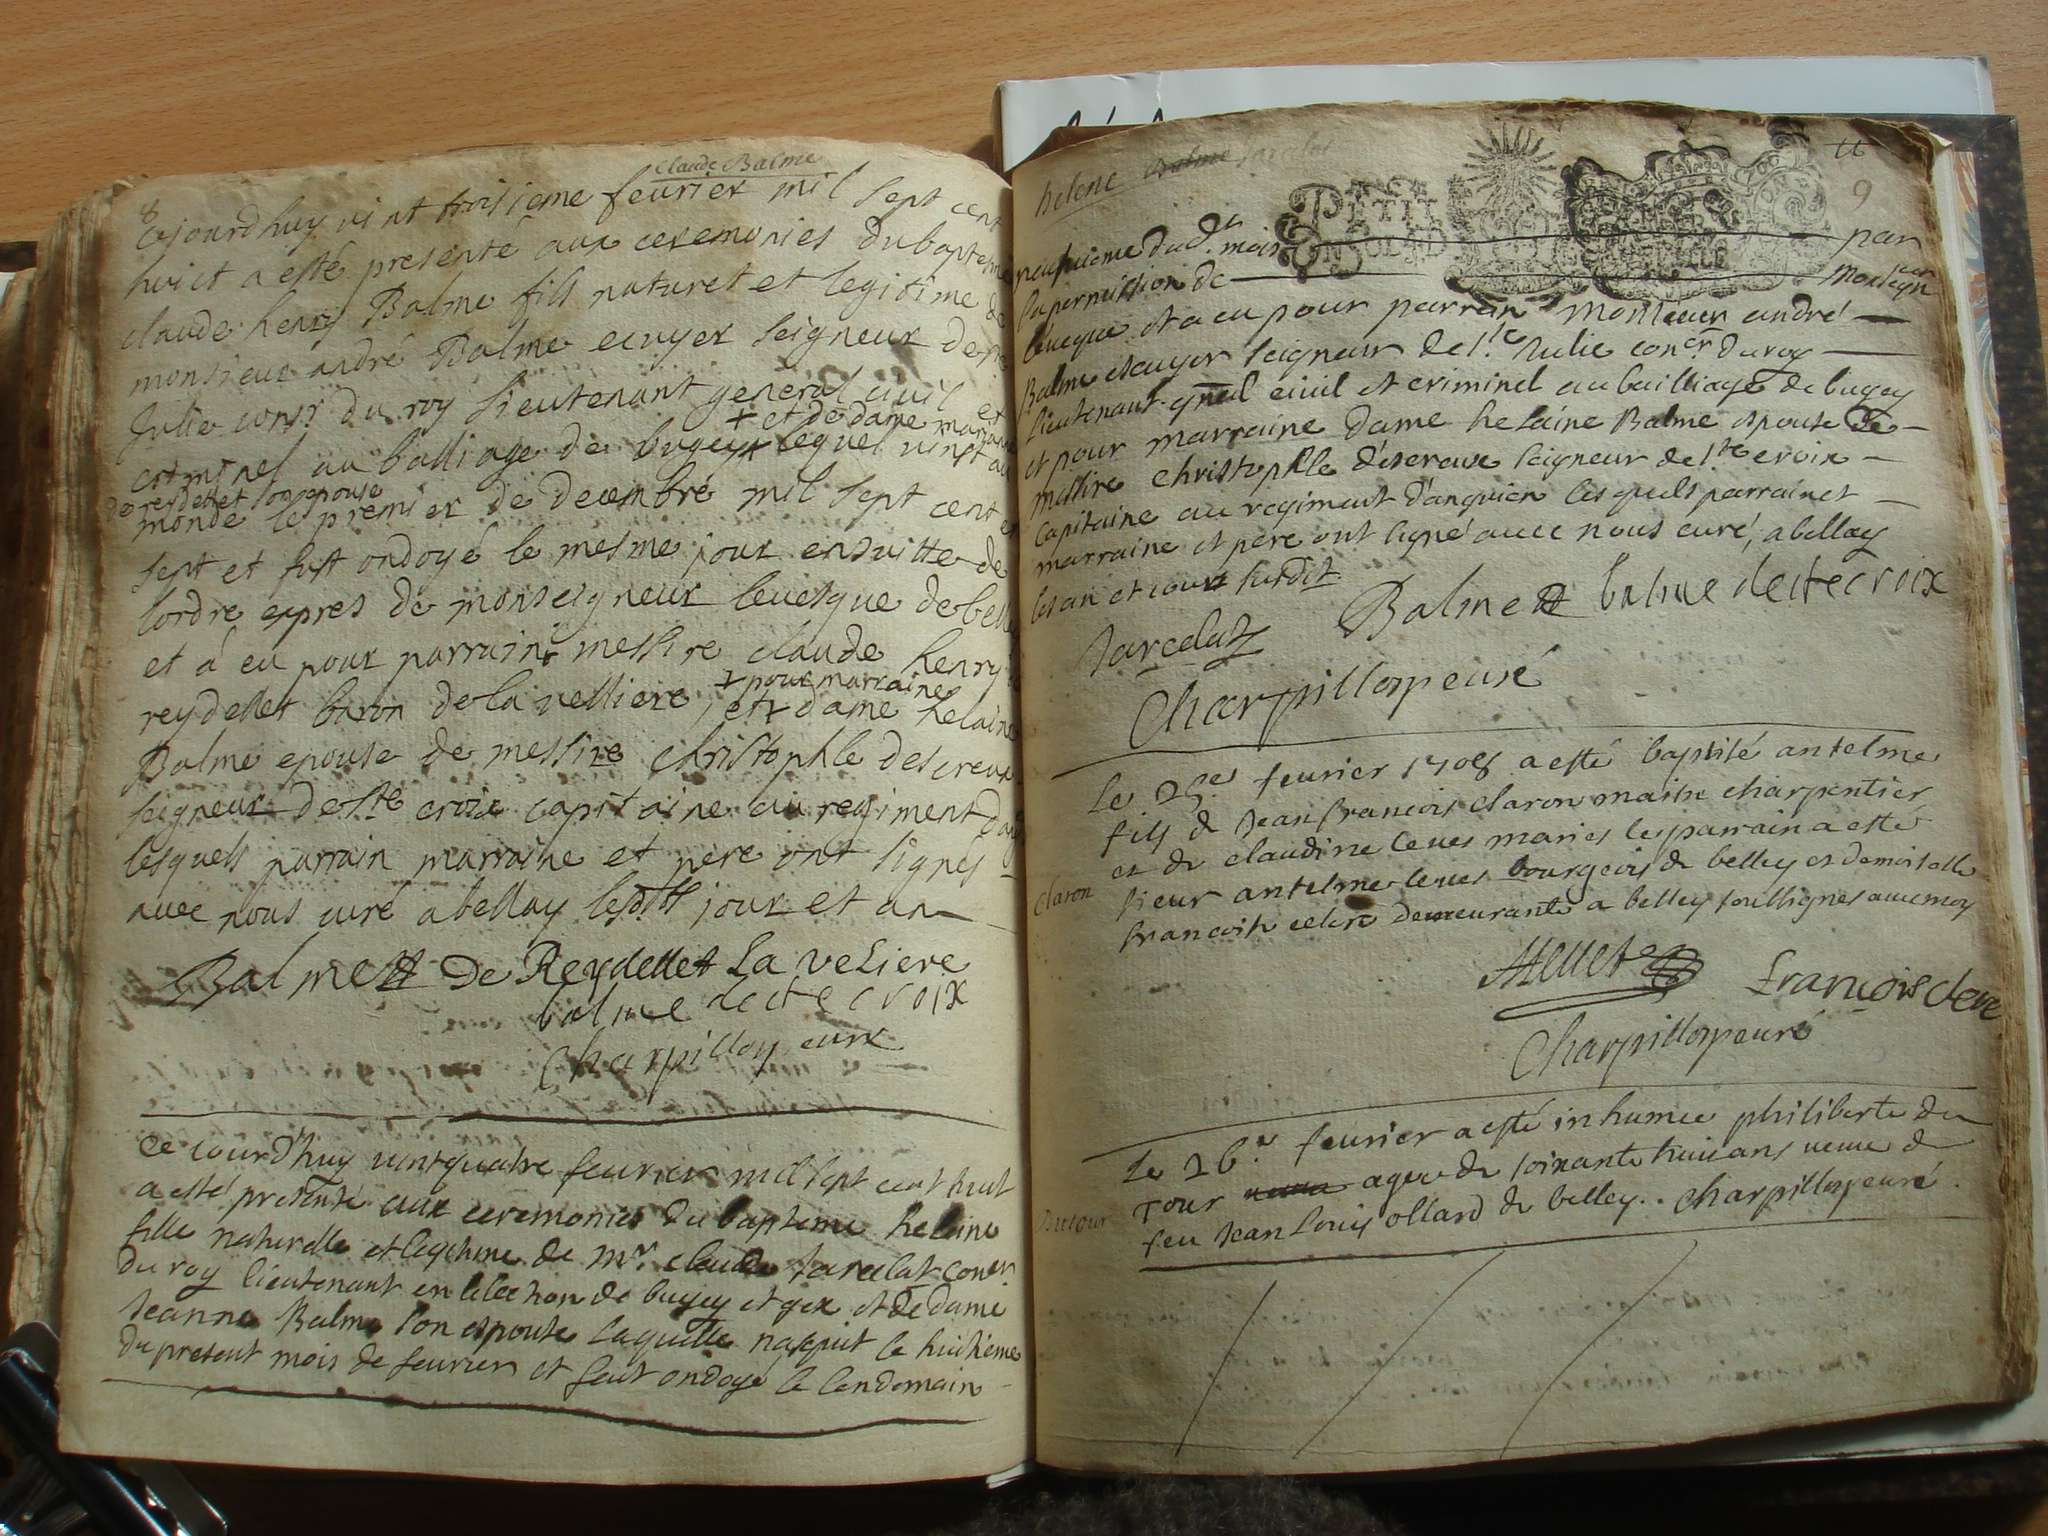 Claude Balme
8
cejourdhuy vint troisieme feurier mil sept cent
huict a esté presenté aux ceremonies du bapteme
claude henry Balme fils naturel et legitime de
monsieur andré Balme ecuyer seigneur de ste
Julie consr du roy lieutenant general ciuil et
+ et de dame marianne
criminel au balliage de bugey + lequel vinst au
de reydellet son epouse
monde le premier de decembre mil sept cent
sept et fust ondoyé le mesme jour ensuitte de
lordre expres de monseigneur leuesque de belley
et a eu pour parrain messire claude henry de
+ pour marraine
reydellet baron de la velliere, et + dame helaine
Balme epouse de messire christophle descreux
seigneur de ste croix capitaine au regiment
lesquels parrain marraine et pere ont signés
auec nous curé a bellay les dits jour et an
Balme de Reydellet La veliere
balme de ste croix
Charpillon curé
Ce jourd'huy vint quatre feurier mil sept cent huit
a esté presenté aux ceremonies du bapteme helaine
fille naturelle et legitime de mr. claude Jarcelat coner.
du roy lieutenant en lelection de bugey et gex et de dame
Jeanne Balme son espouse laquelle nasquit le huitieme
du present mois de feurier et feut ondoyé le lendemain
helene Balme
u
9
PETIT
neufuieme dud.t mois par
la permission de Monseigneur
l'éueque et a eu pour parrain Monsieur andré
Balme escuyer seigneur de s.te Julie con.er du roy
lieutenant gnéal ciuil et criminel au bailliage de bugey
et pour marraine dame helaine Balme espouse de
messire christophle d'escreux seigneur de s.te croix
capitaine au regiment d'anguien lesquels parrain et
marraine et pere ont signé auec nous curé, a bellay
les an et jour susdit.
Jarcelat Balme balme de ste croix
Charpillon curé
Claron
Le 25e feurier 1708 a esté baptisé antelme
fils de Jean francois claron maitre charpentier
et de claudine leues mariés le parrain a esté
sieur antelme leues bourgeois de belley et demoiselle
francoise clere demeurante a belley soussignés auec moy
francoise clere
Charpillon curé
Dutour
Le 26.e feurier a esté inhumee philiberte du
Tour agee de soixante huit ans veuue de
feu Jean Louis ollard de belley.. Charpillon curé.